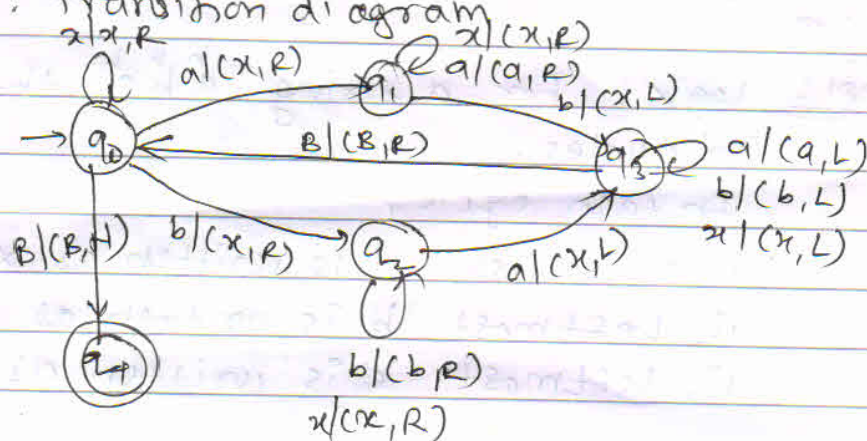 Transition diagram
x/x,R
a/(x,R)
x/(x,R)
a/(a,R)
q1
b/(x,L)
q0
B/(B,R)
q3
a/(a,L)
b/(b,L)
x/(x,L)
B/(B,N)
b/(x,R)
q2
a/(x,L)
q4
b/(b,R)
x/(x,R)